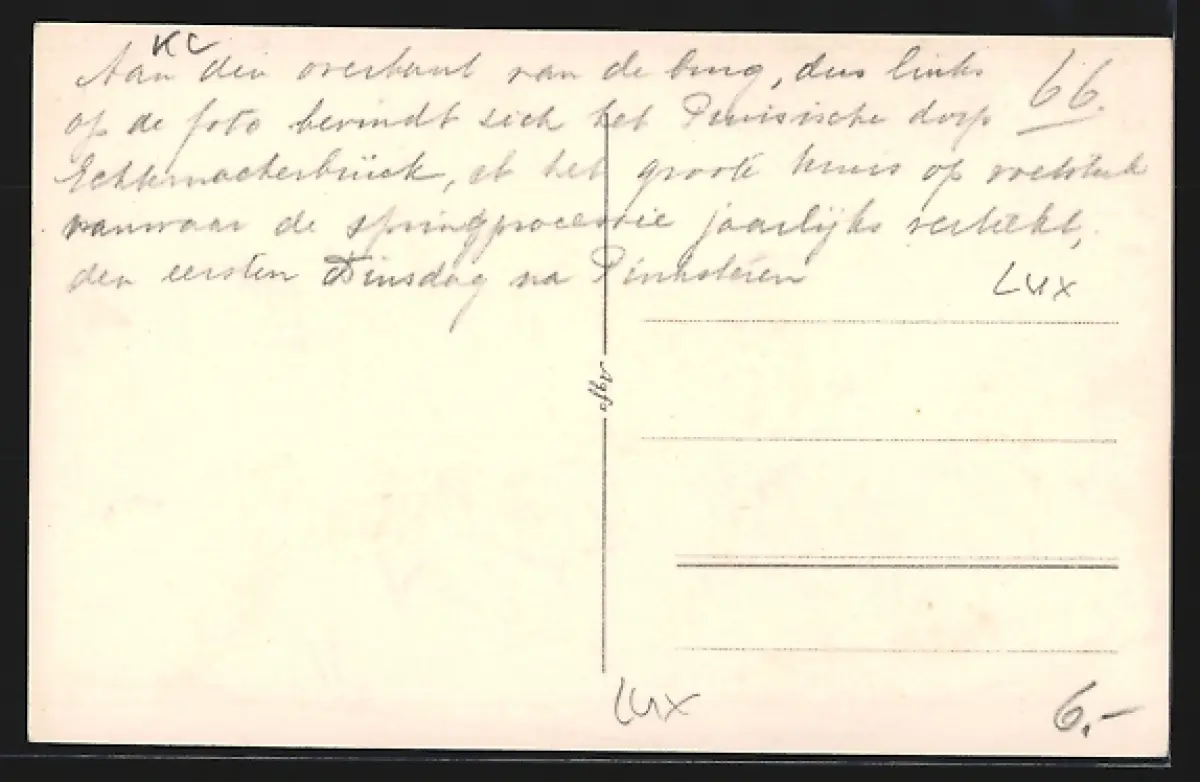 KC
Aan den overkant van de brug, dus links
66.
op de foto bevindt zich het Pruisische dorp
Echternacherbrück, et het groote huis op
vanwaar de springprocessie jaarlijks vertrekt,
den eersten Dinsdag na Pinksteren
LUX
Agfa
LUX
6.-